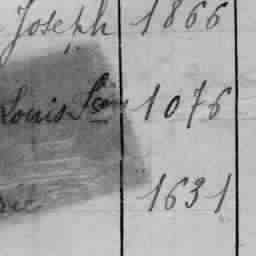 Joseph 1866
Louis Sen 1076
1631